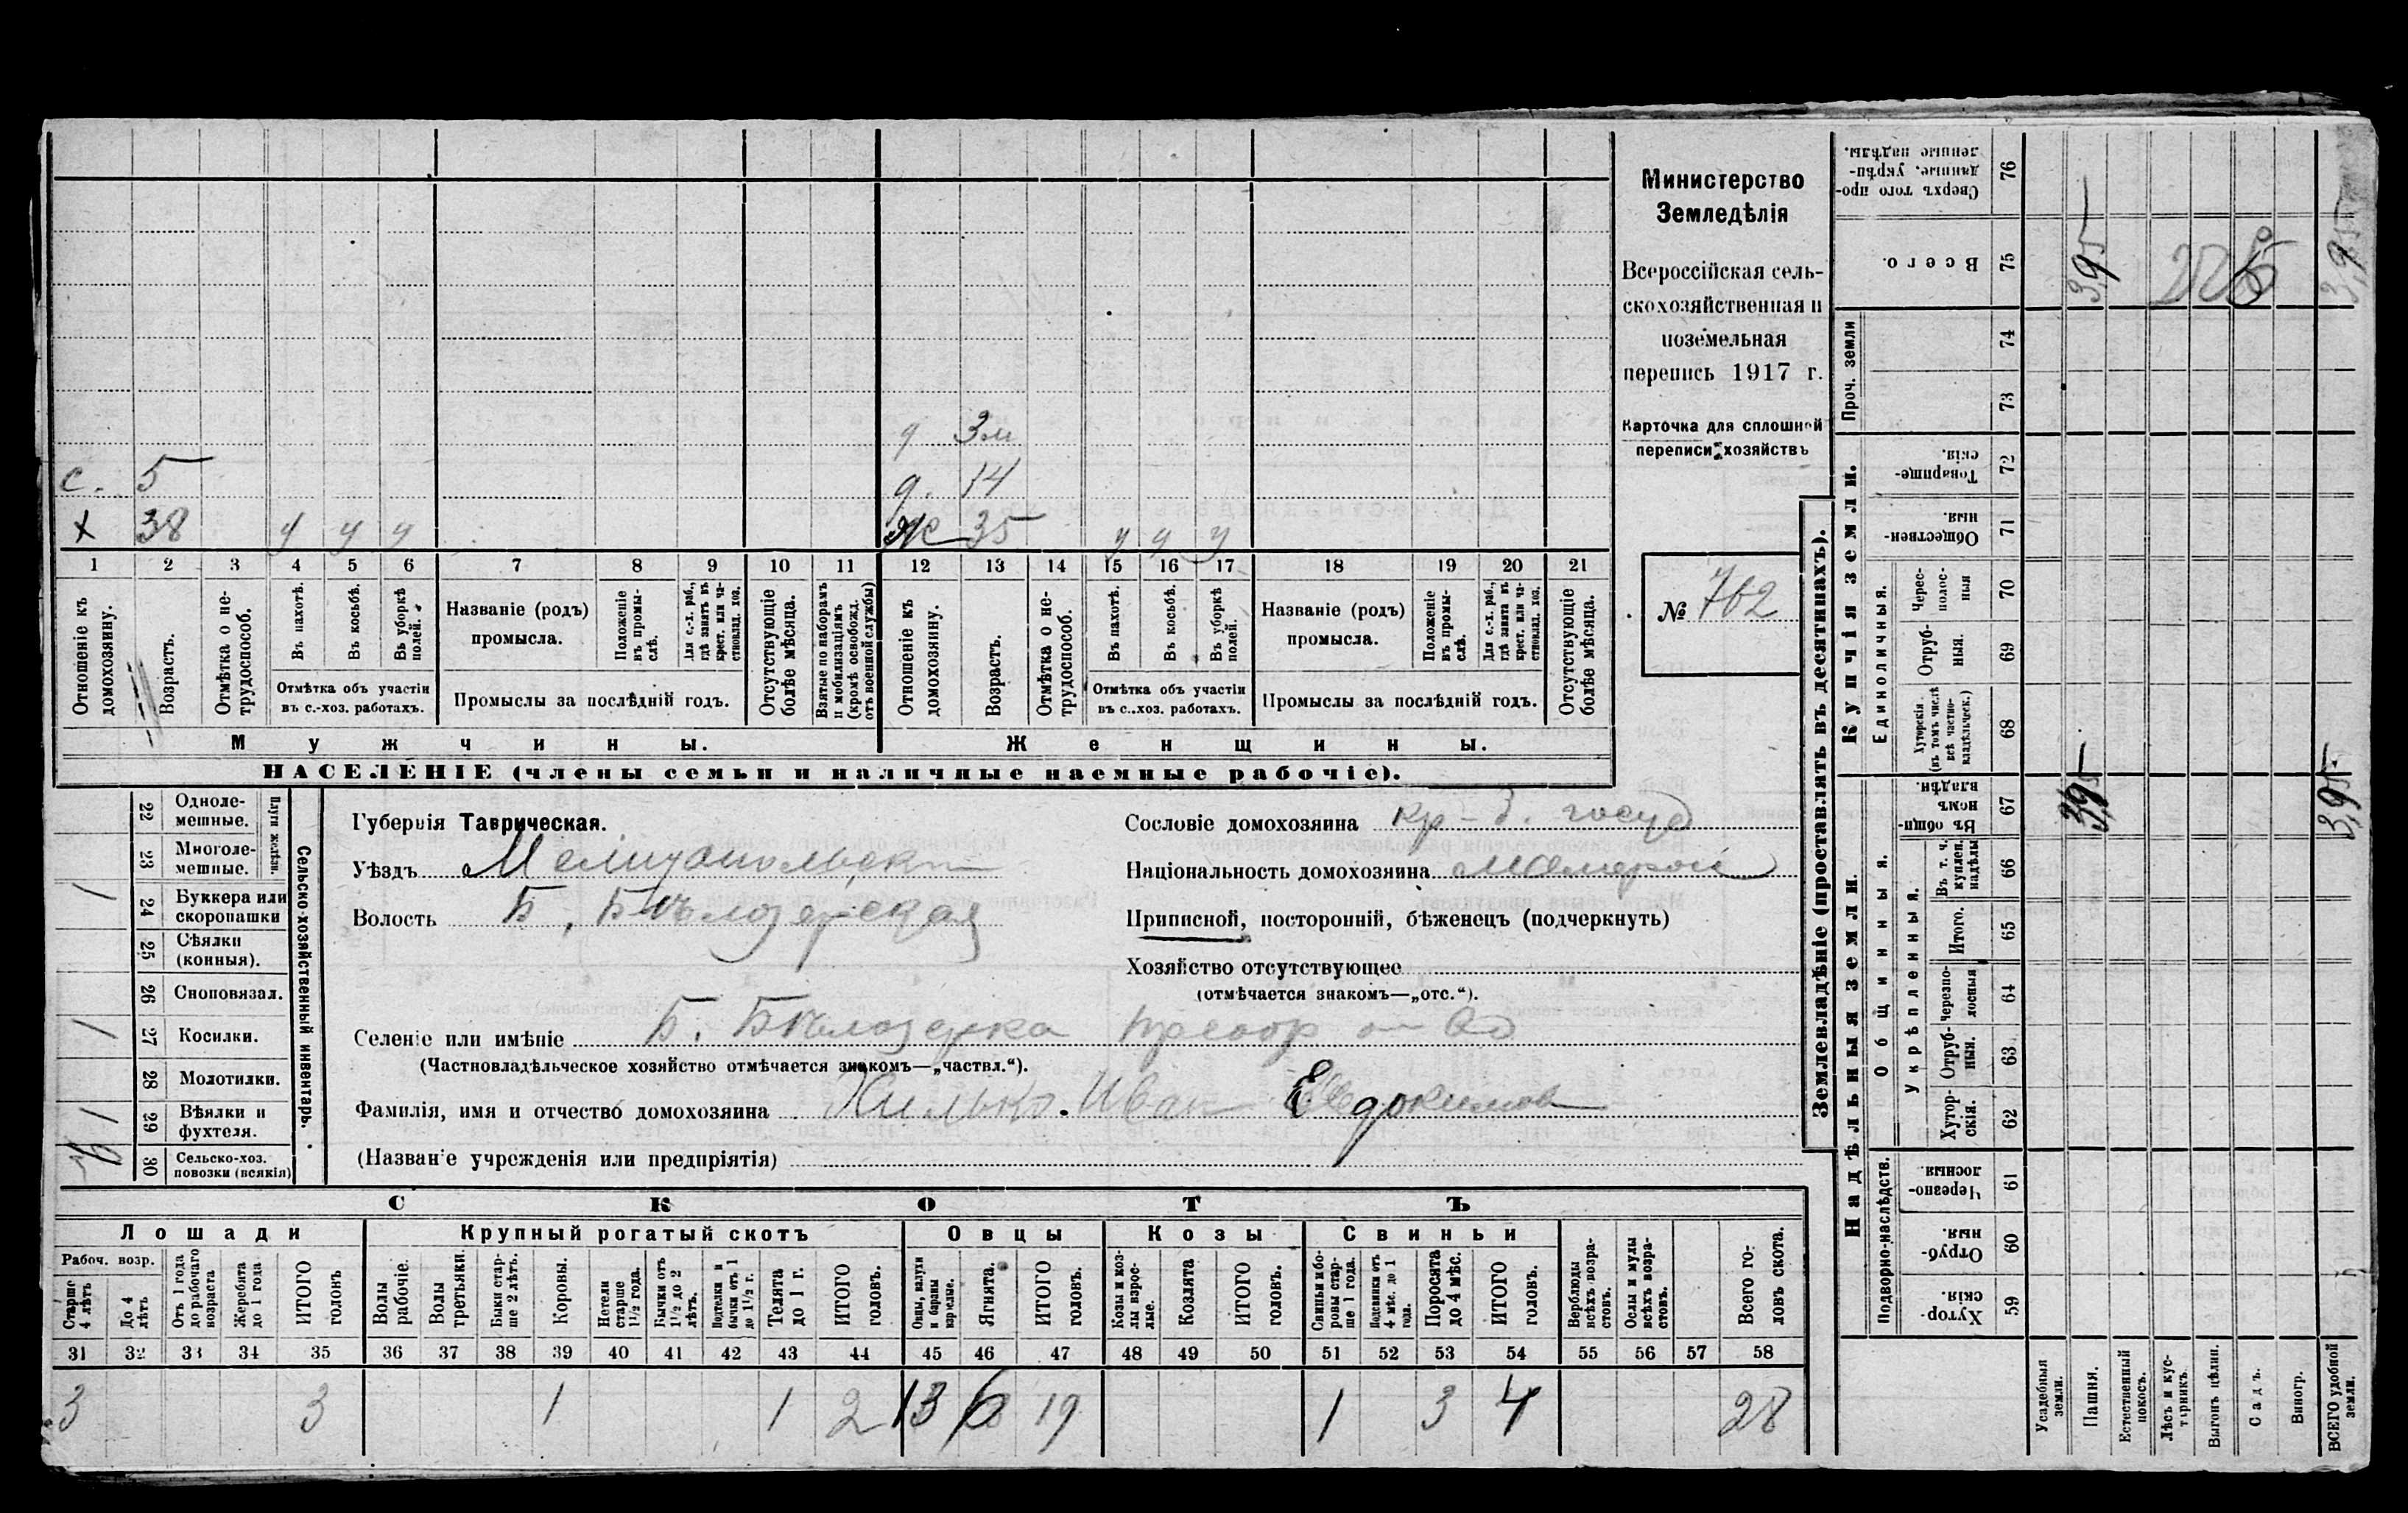 Министерство
Земледѣлія
Всероссійская сель-
скохозяйственная и
поземельная
перепись 1917 г.
Карточка для сплошной
переписи хозяйствъ
№ 762
д 3м
с. 5
д. 14
х 38 у у у
ж 35 у у у
1 2 3 4 5 6 7 8 9 10 11 12 13 14 15 16 17 18 19 20 21
Отношеніе къ домохозяину.
Возрастъ.
Отмѣтка о не-трудоспособ.
Въ пахотѣ.
Въ косьбѣ.
Въ уборкѣ полей.
Отмѣтка объ участіи
въ с.-хоз. работахъ.
Названіе (родъ)
промысла.
Положеніе въ промы-слѣ.
Для с.-х. раб., гдѣ занятъ въ крест. или ча-стновлад. хоз.
Промыслы за послѣдній годъ.
Отсутствующіе болѣе мѣсяца.
Взятые по наборамъ и мобилизаціямъ (кромѣ освобожд. отъ военной службы)
Отношеніе къ домохозяину.
Возрастъ.
Отмѣтка о не-трудоспособ.
Въ пахотѣ.
Въ косьбѣ.
Въ уборкѣ полей.
Отмѣтка объ участіи
въ с.-хоз. работахъ.
Названіе (родъ)
промысла.
Положеніе въ промы-слѣ.
Для с.-х. раб., гдѣ занята въ крест. или ча-стновлад. хоз.
Промыслы за послѣдній годъ.
Отсутствующіе болѣе мѣсяца.
Мужчины.
Женщины.
НАСЕЛЕНІЕ (члены семьи и наличные наемные рабочіе).
Сельско-хозяйственный инвентарь.
Плуги желѣзн.
22 Одноле-мешные.
23 Многоле-мешные.
1 24 Буккера или скоропашки
25 Сѣялки (конныя).
26 Сноповязал.
1 27 Косилки.
28 Молотилки.
1 29 Вѣялки и фухтеля.
30 Сельско-хоз. повозки (всякія)
Губернія Таврическая.
Уѣздъ Мелитопольск
Волость Б. Бѣлозерская
Селеніе или имѣніе Б. Бѣлозерка
(Частновладѣльческое хозяйство отмѣчается знакомъ—„частвл.“).
Фамилія, имя и отчество домохозяина Хилько Иван Евдокимов
(Названіе учрежденія или предпріятія)
Сословіе домохозяина кр-
Національность домохозяина малорос
Приписной, посторонній, бѣженецъ (подчеркнуть)
Хозяйство отсутствующее
(отмѣчается знакомъ—„отс.“).
СКОТЪ
Лошади
Рабоч. возр.
Старше 4 лѣтъ
До 4 лѣтъ
Отъ 1 года до рабочаго возраста
Жеребята до 1 года
ИТОГО головъ
Крупный рогатый скотъ
Волы рабочіе.
Волы третьяки.
Быки стар-ше 2 лѣтъ.
Коровы.
Нетели старше 1½ года.
Бычки отъ 1½ до 2 лѣтъ.
Подтелки и бычки отъ 1 до 1½ г.
Телята до 1 г.
ИТОГО головъ.
Овцы
Овцы, валухи и бараны взрослые.
Ягнята.
ИТОГО головъ.
Козы
Козы и коз-лы взрос-лые.
Козлята
ИТОГО головъ.
Свиньи
Свиньи и бо-ровы стар-ше 1 года.
Подсвинки отъ 4 мѣс. до 1 года.
Поросята до 4 мѣс.
ИТОГО головъ.
Верблюды всѣхъ возра-стовъ.
Ослы и мулы всѣхъ возра-стовъ.
Всего го-ловъ скота.
31 32 33 34 35 36 37 38 39 40 41 42 43 44 45 46 47 48 49 50 51 52 53 54 55 56 57 58
3 3 1 1 2 13 6 19 1 3 4 28
Землевладѣніе (проставлять въ десятинахъ).
Надѣльныя земли.
Подворно-наслѣдств.
59 Хутор-скія.
60 Отруб-ныя.
61 Черезпо-лосныя.
Общинныя.
Укрѣпленныя.
62 Хутор-скія.
63 Отруб-ныя.
64 Черезпо-лосныя
65 Итого.
66 Въ т. ч. куплен. надѣлы
67 Въ общи-номъ владѣн.
Купчія земли.
Единоличныя.
68 Хуторскія (въ томъ числѣ всѣ частно-владѣльческ.)
69 Отруб-ныя.
70 Черес-полос-ныя
71 Обществен-ныя.
72 Товарище-скія.
Проч. земли
73
74
75 Всего.
76 Сверхъ того про-данные, укрѣп-ленные надѣлы.
Усадебныя земли.
Пашня.
Естественный покосъ.
Лѣсъ и кус-тарникъ.
Выгонъ цѣлин.
Садъ.
Виногр.
ВСЕГО удобной земли.
3,95 3,95
3,95 3,95